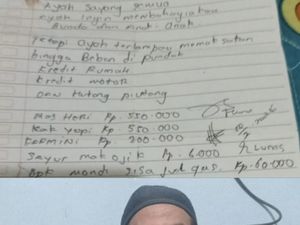 Ayah Sayang semua
Ayah ingin membahagiakan
Bunda dan Anak-anak
tetapi Ayah terlampau memaksakan
hingga Beban di Pundak
Kredit Rumah
kredit motor
dan Hutang piutang
Mas Heri Rp. 550.000
Kak Yopi Rp. 550.000
Rp. 200.000
Sayur mak ojik Rp. 6.000
Lunas
Rp. 60.000